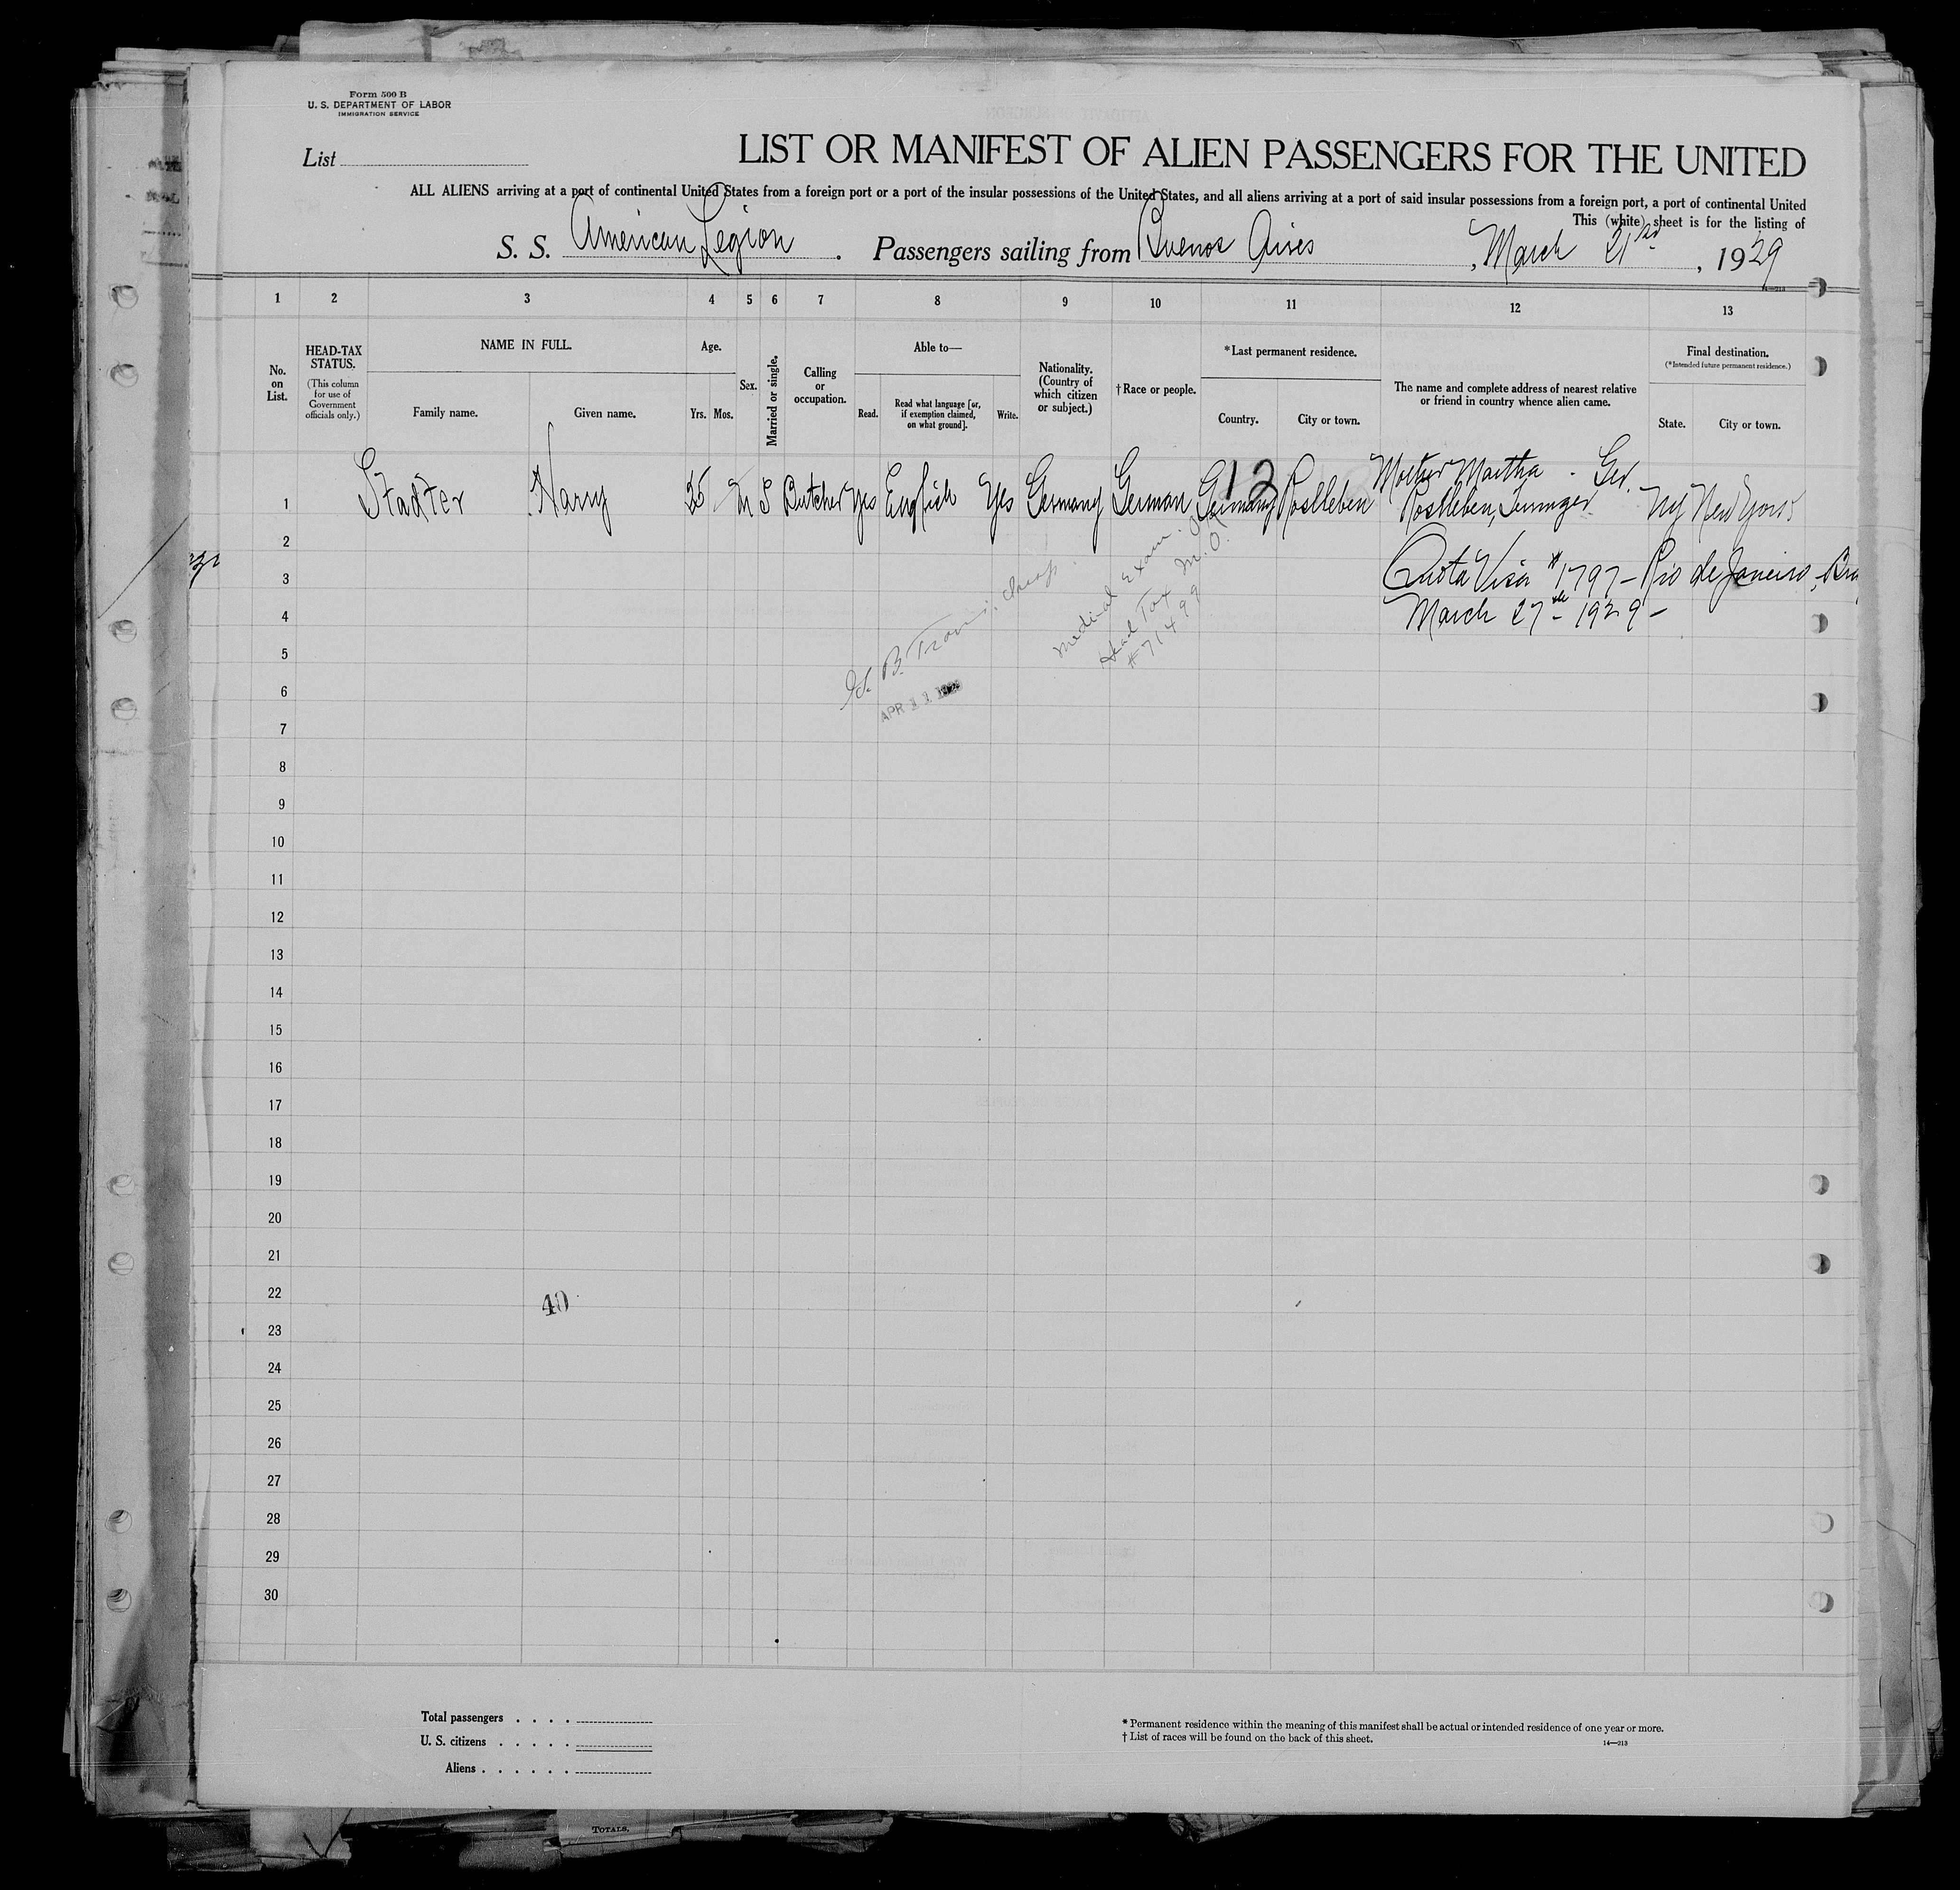 Form 500 B
U. S. DEPARTMENT OF LABOR
IMMIGRATION SERVICE
List
LIST OR MANIFEST OF ALIEN PASSENGERS FOR THE UNITED
ALL ALIENS arriving at a port of continental United States from a foreign port or a port of the insular possessions of the United States, and all aliens arriving at a port of said insular possessions from a foreign port, a port of continental United
This (white) sheet is for the listing of
S. S. American Legion . Passengers sailing from Buenos Aires , March 21st , 1929
14—213
1 2 3 4 5 6 7 8 9 10 11 12 13
No. on List.
HEAD-TAX STATUS.
(This column for use of Government officials only.)
NAME IN FULL.
Family name. Given name.
Age.
Yrs. Mos.
Sex.
Married or single.
Calling or occupation.
Able to—
Read. Read what language [or, if exemption claimed, on what ground]. Write.
Nationality. (Country of which citizen or subject.)
†Race or people.
*Last permanent residence.
Country. City or town.
The name and complete address of nearest relative or friend in country whence alien came.
Final destination.
(*Intended future permanent residence.)
State. City or town.
12
Mother Martha - Ger.
1 Stadter Harry 25 M S Butcher Yes English Yes Germany German Germany Rossleben Rossleben, NY New York
2
Quota Visa #1797 - Rio de Janeiro, Bra
3
March 27th - 1929 -
4
Medical Exam.
Head Tax M.O.
#71499
5
6
APR 11
7
8
9
10
11
12
13
14
15
16
17
18
19
20
21
22
40
23
24
25
26
27
28
29
30
Total passengers . . . .
U. S. citizens . . . . .
Aliens . . . . . .
* Permanent residence within the meaning of this manifest shall be actual or intended residence of one year or more.
† List of races will be found on the back of this sheet.
14—213
TOTALS.